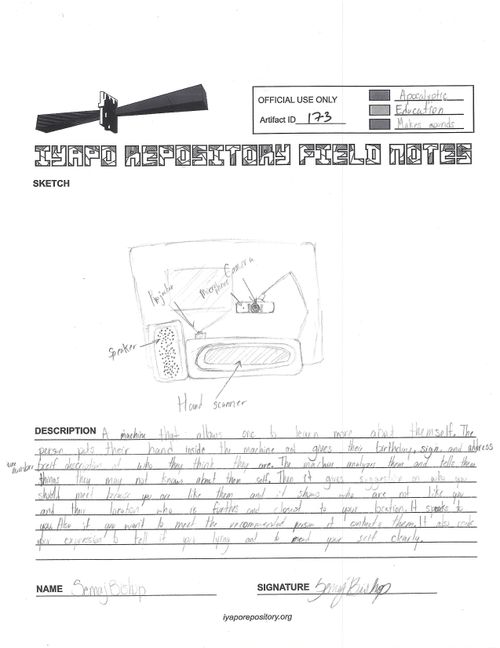 OFFICIAL USE ONLY
Artifact ID 173
Apocalyptic
Education
Makes sounds
IYAPO REPOSITORY FIELD NOTES
SKETCH
Projector
Microphone
Camera
Speaker
Hand scanner
DESCRIPTION A machine that allows one to learn more about themself. The
person puts their hand inside the machine and gives their birthday, sign, and address
brief description of who they think they are. The machine analyzes them and tells them
things they may not know about them self. Then it gives suggestion on who you
should meet because you are like them and it shows who are not like you
and their location who is farthest and closest to your location. It speaks to
you. Also if you want to meet the recommended person it contacts them. It also
your expression to tell if you lying and to your self clearly.
number
NAME Semaj Bishop
SIGNATURE Semaj Bishop
iyaporepository.org